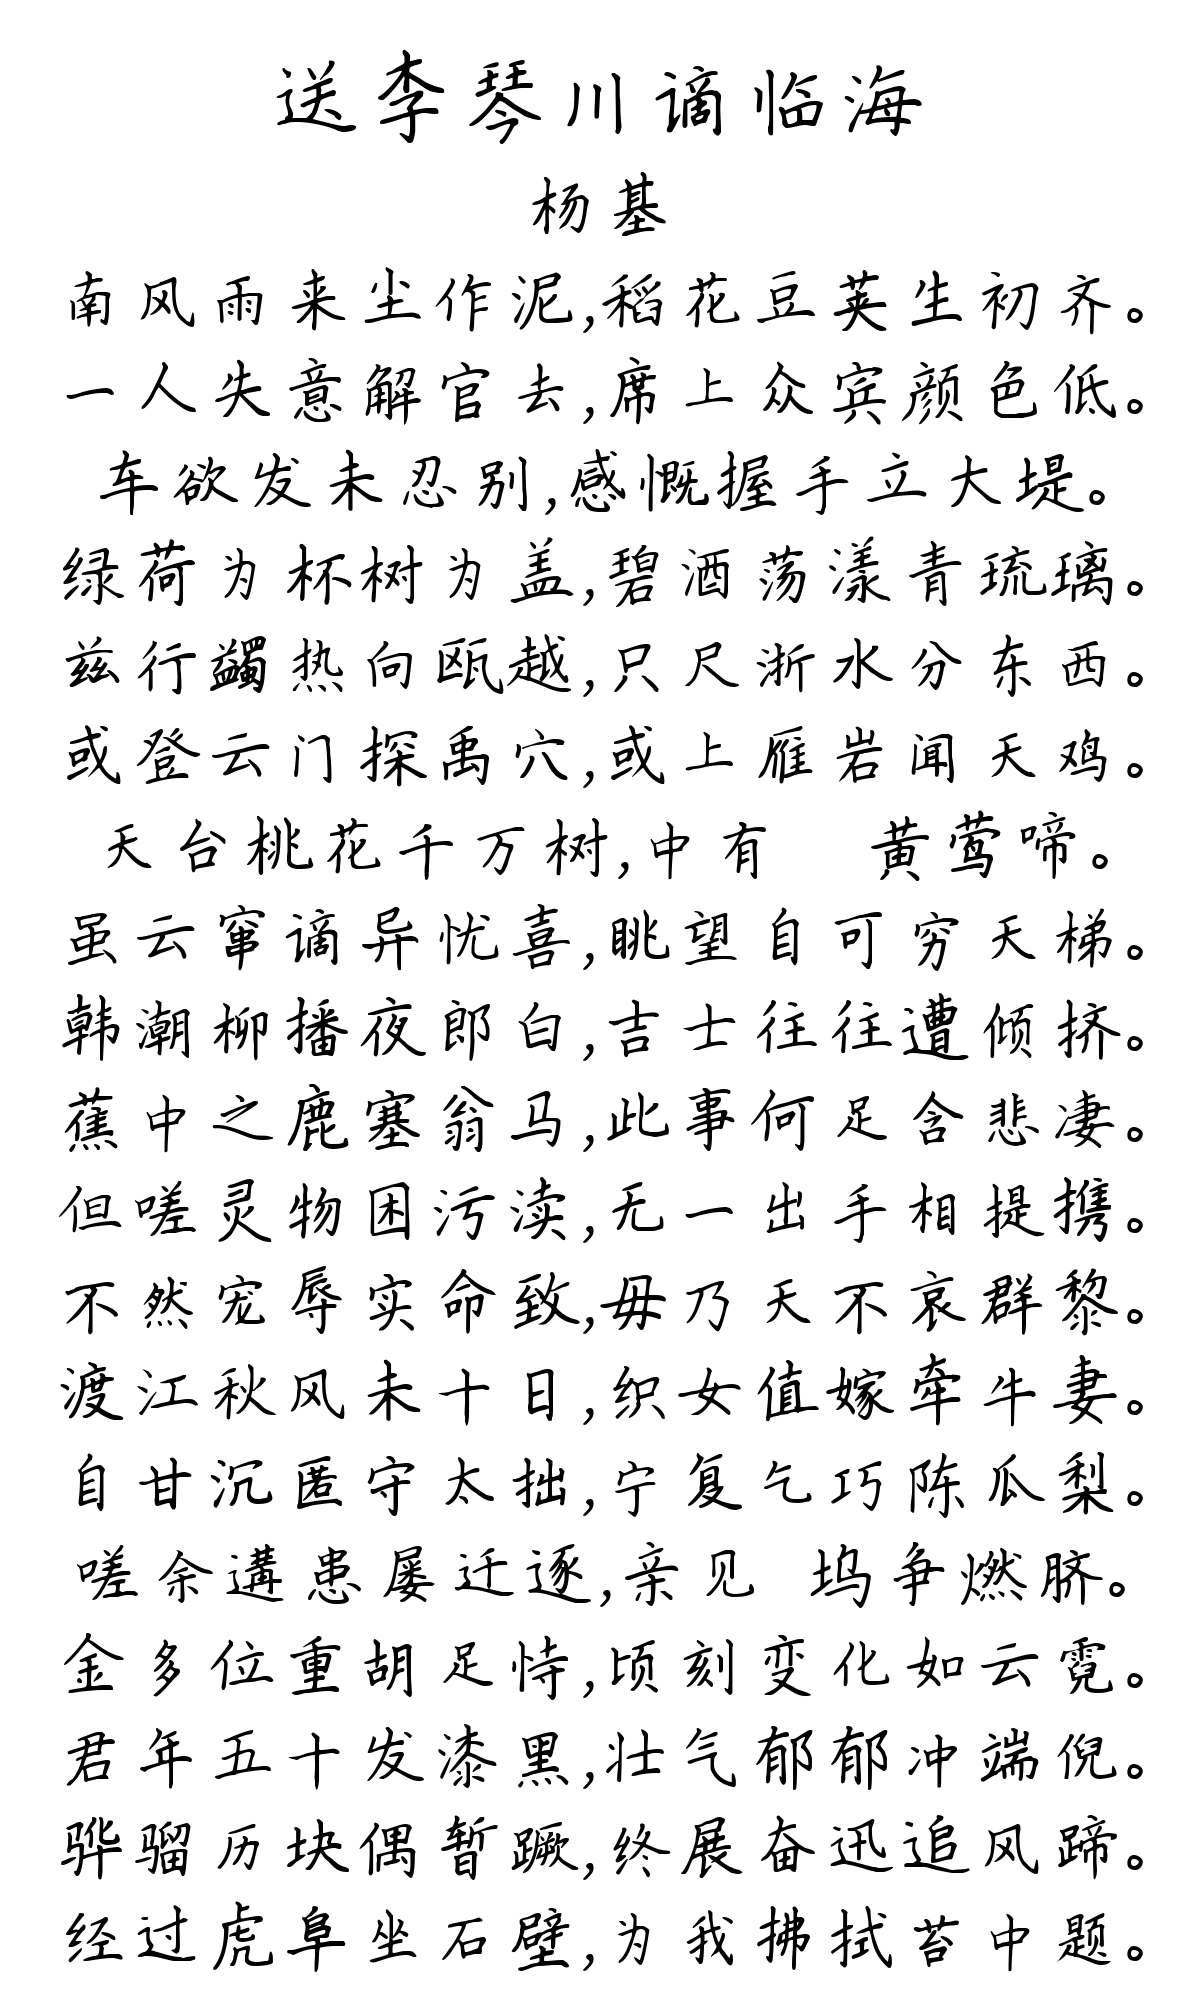 送李琴川谪临海
杨基
南风雨来尘作泥,稻花豆荚生初齐。
一人失意解官去,席上众宾颜色低。
车欲发未忍别,感慨握手立大堤。
绿荷为杯树为盖,碧酒荡漾青琉璃。
兹行蠲热向瓯越,只尺浙水分东西。
或登云门探禹穴,或上雁岩闻天鸡。
天台桃花千万树,中有 黄莺啼。
虽云窜谪异忧喜,眺望自可穷天梯。
韩潮柳播夜郎白,吉士往往遭倾挤。
蕉中之鹿塞翁马,此事何足含悲凄。
但嗟灵物困污渎,无一出手相提携。
不然宠辱实命致,毋乃天不哀群黎。
渡江秋风未十日,织女值嫁牵牛妻。
自甘沉匿守太拙,宁复乞巧陈瓜梨。
嗟余遘患屡迁逐,亲见 坞争燃脐。
金多位重胡足恃,顷刻变化如云霓。
君年五十发漆黑,壮气郁郁冲端倪。
骅骝历块偶暂蹶,终展奋迅追风蹄。
经过虎阜坐石壁,为我拂拭苔中题。